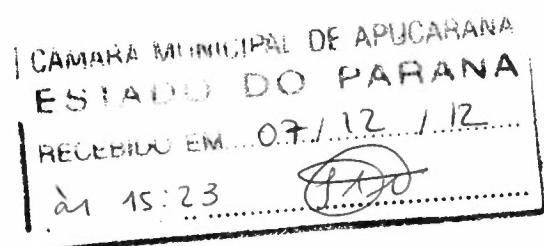 CÂMARA MUNICIPAL DE APUCARANA
ESTADO DO PARANA
RECEBIDO EM 07/12/12
às 15:23